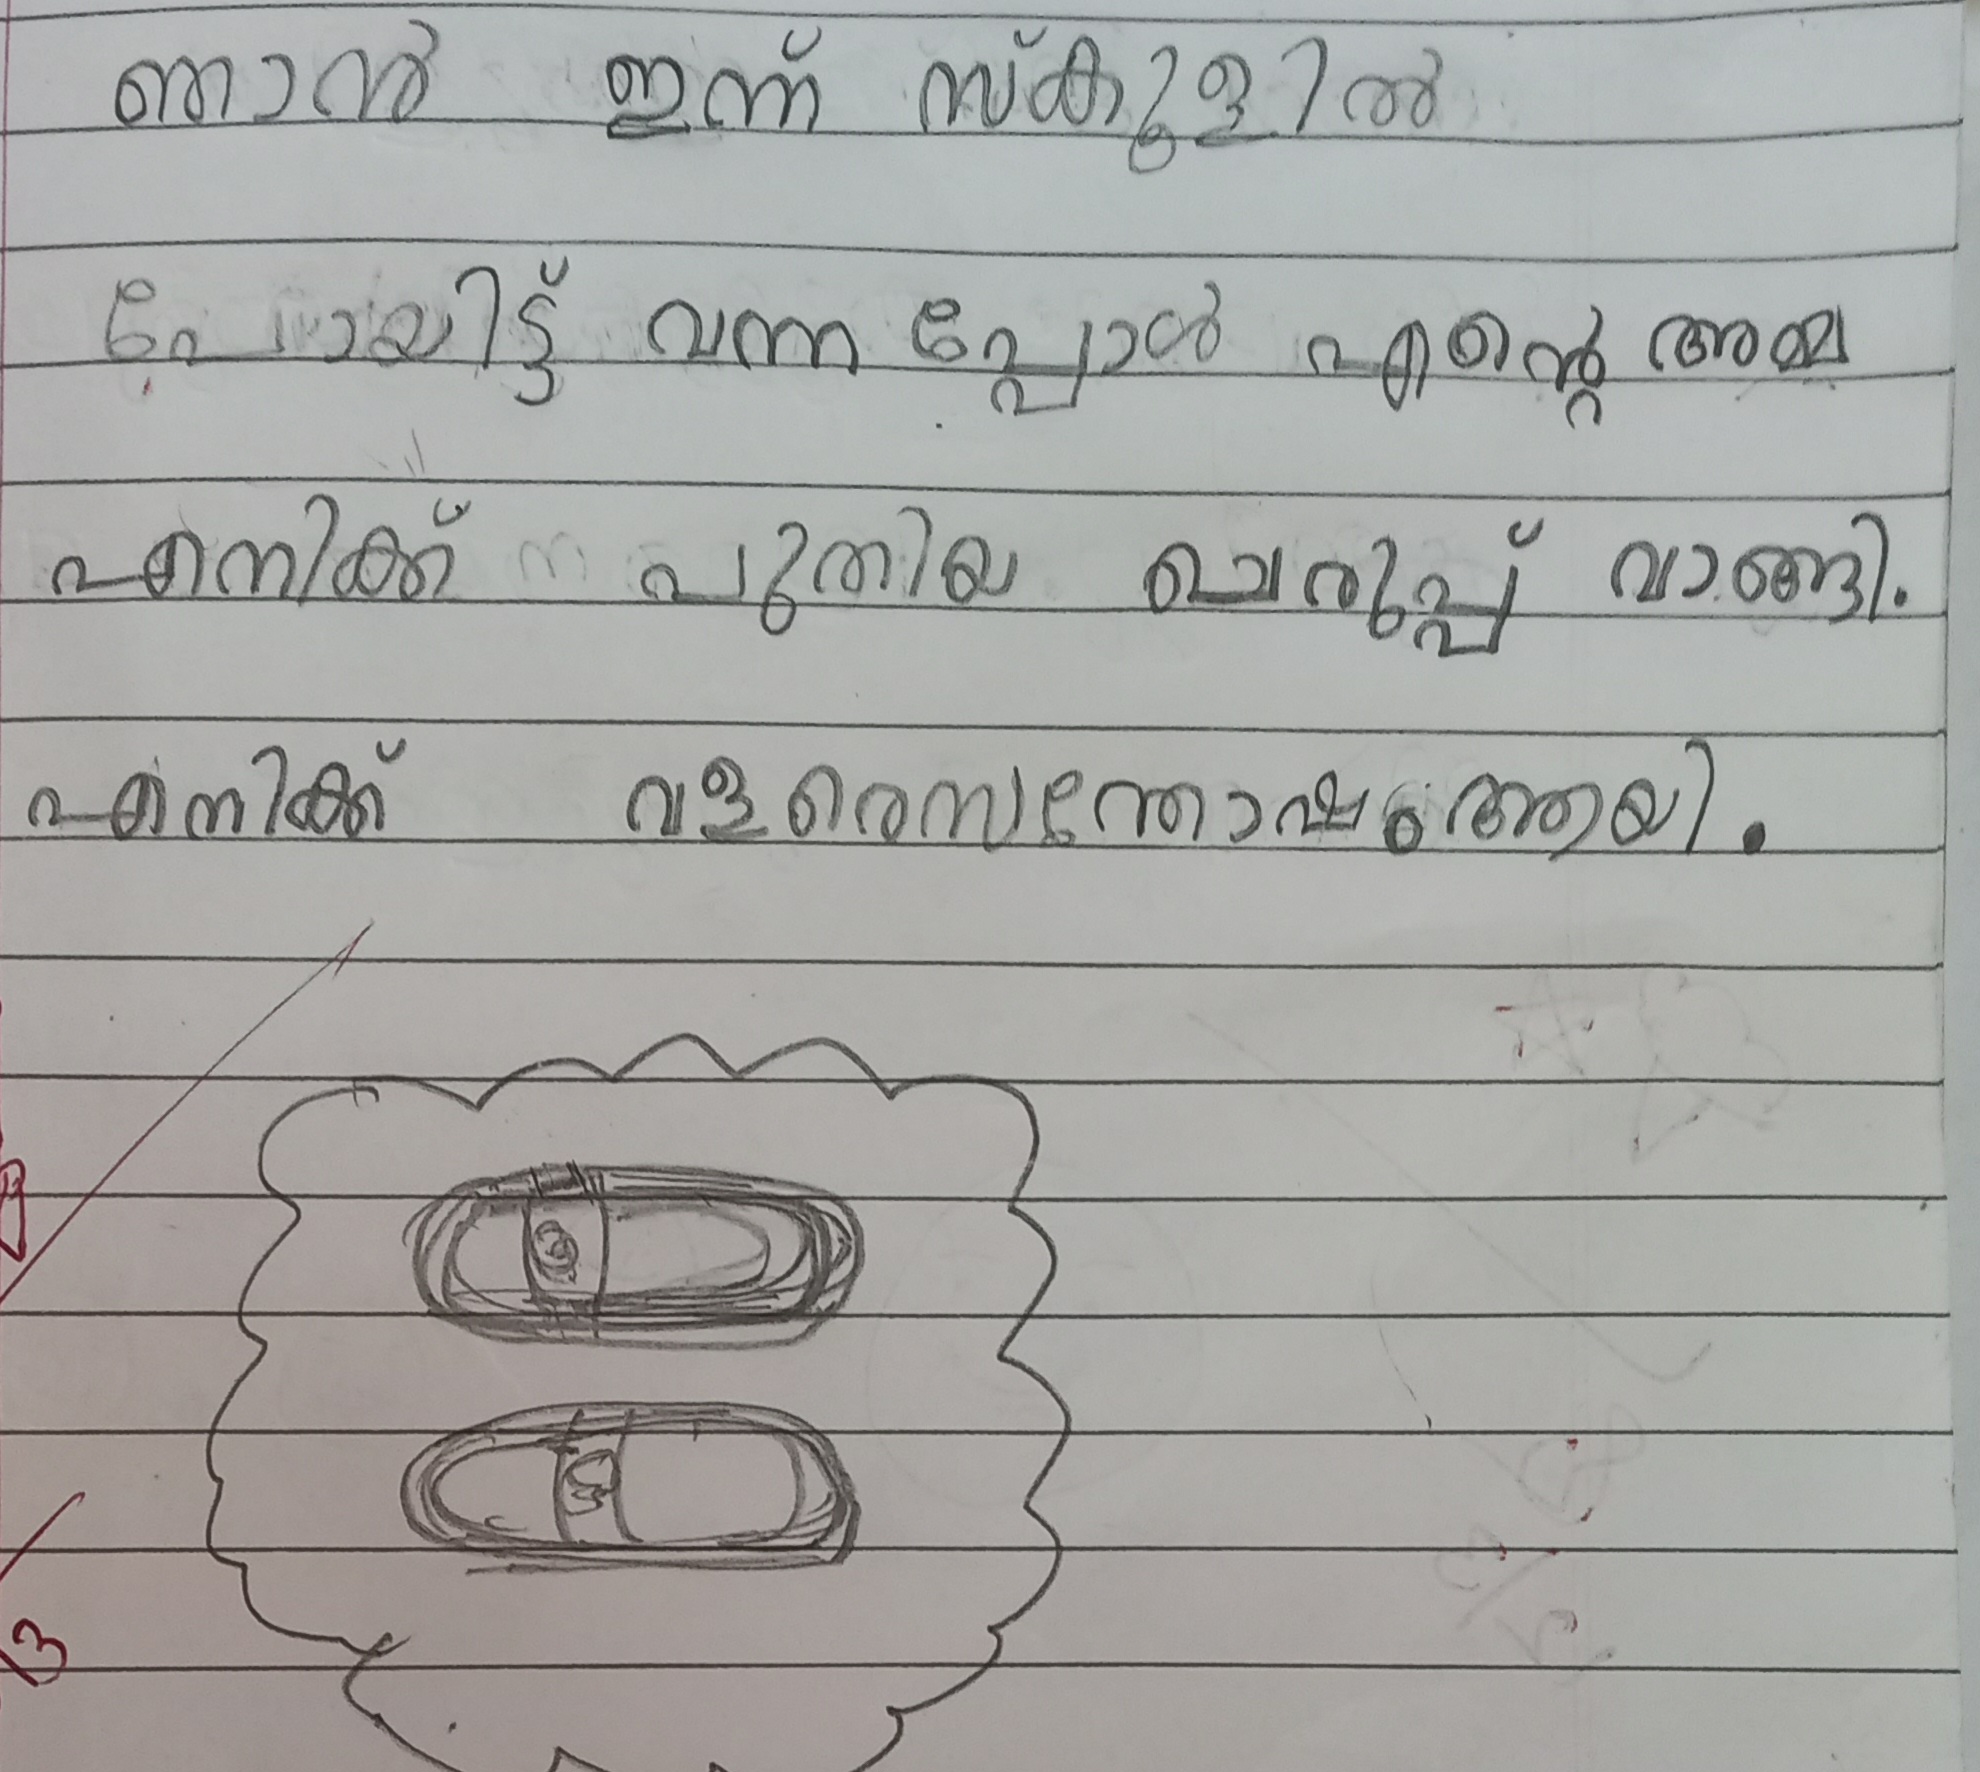 ഞാൻ ഇന്ന് സ്കൂളിൽ
പോയിട്ട് വന്നപ്പോൾ എൻ്റെ അമ്മ
എനിക്ക് പുതിയ ചെരുപ്പ് വാങ്ങി.
എനിക്ക് വളരെസന്തോഷംആയി.